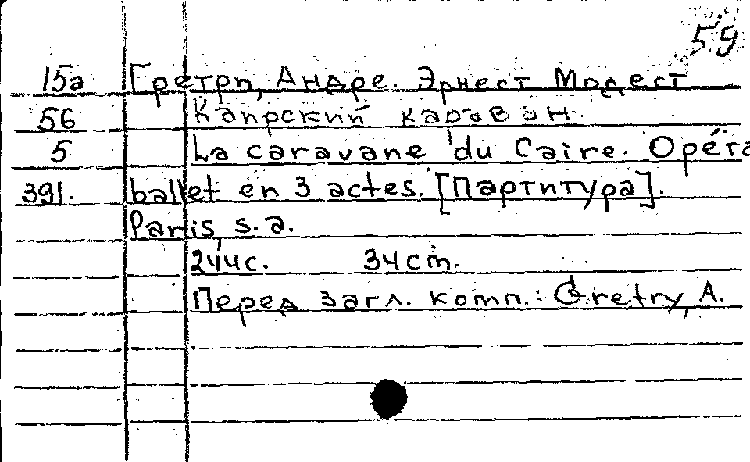 59
15а Гретри, Андре. Эрнест Модест
56 Каирский караван.
5 La caravane du Caire. Opéra
391. ballet en 3 actes. [Партитура].
Paris, s.a.
244с. 34см.
Перед загл. комп.: Gretry, A.